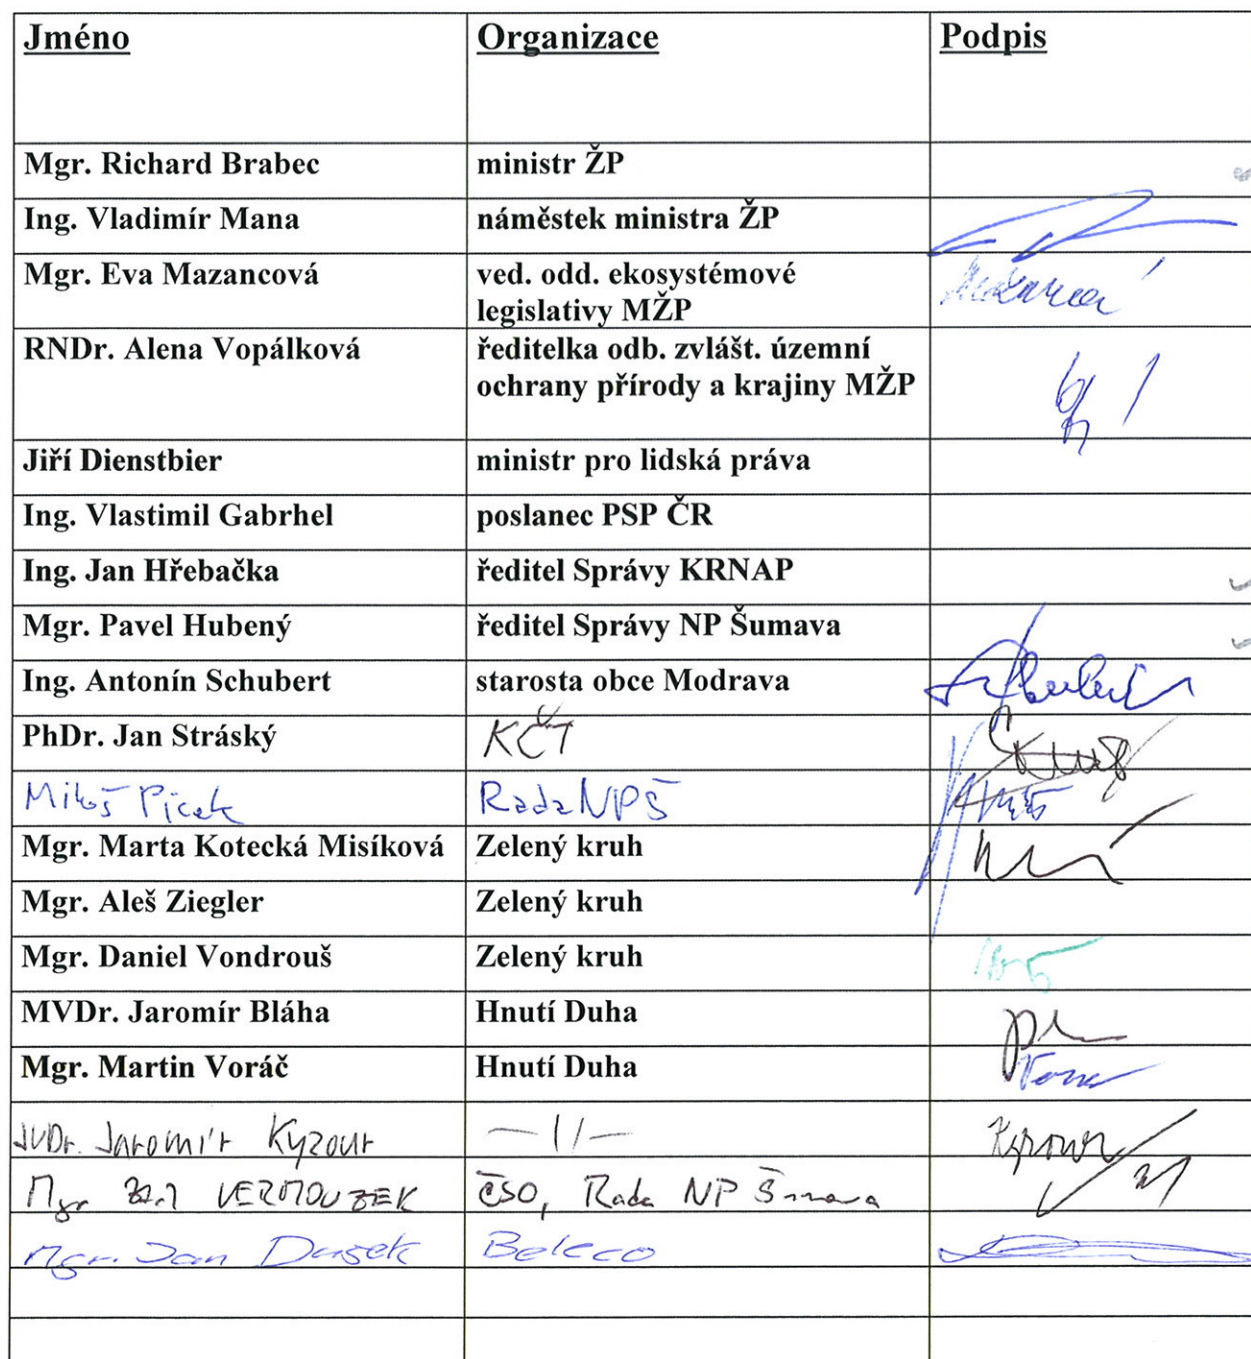 Jméno Organizace Podpis
Mgr. Richard Brabec ministr ŽP
Ing. Vladimír Mana náměstek ministra ŽP
Mgr. Eva Mazancová ved. odd. ekosystémové
legislativy MŽP
RNDr. Alena Vopálková ředitelka odb. zvlášt. územní
ochrany přírody a krajiny MŽP
Jiří Dienstbier ministr pro lidská práva
Ing. Vlastimil Gabrhel poslanec PSP ČR
Ing. Jan Hřebačka ředitel Správy KRNAP
Mgr. Pavel Hubený ředitel Správy NP Šumava
Ing. Antonín Schubert starosta obce Modrava
PhDr. Jan Stráský KČT
Miloš Picek Rada NPŠ
Mgr. Marta Kotecká Misíková Zelený kruh
Mgr. Aleš Ziegler Zelený kruh
Mgr. Daniel Vondrouš Zelený kruh
MVDr. Jaromír Bláha Hnutí Duha
Mgr. Martin Voráč Hnutí Duha
JUDr. Jaromír Kyzour —//—
Mgr VERMOUZEK ČSO, Rada NP Šumava
Mgr. Jan Dusek Beleco